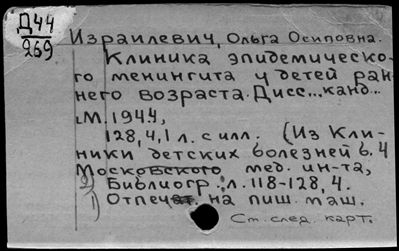 Д44
269
Израилевич, Ольга Осиповна.
Клиника эпидемическо-
го менингита у детей ран-
него возраста. Дисс... канд...
М. 1944,
128, 4, 1 л. с илл. (Из Кли-
ники детских болезней в. 4
Московского мед. ин-та,
2) Библиогр.: л. 118-128, 4.
1) Отпечат. на пиш. маш.
См. след. карт.